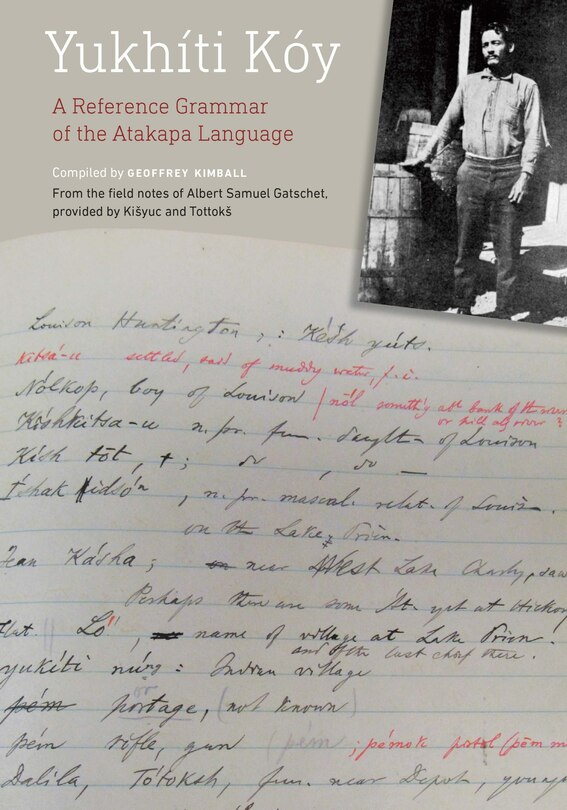 Yukhíti Kóy
A Reference Grammar
of the Atakapa Language
Compiled by GEOFFREY KIMBALL
From the field notes of Albert Samuel Gatschet,
provided by Kišyuc and Tottokš
Louison Huntington ; : Késh yúts.
Kitsá-u settled, said of muddy water, f. i.
Nólkop, boy of Louison / nōl someth'g abt bank of the river
or hill abv river ?
Kishkitsa-u n. pr. fem. daught- of Louison
Kish tōt, +; do , do —
Íshak , n. pr. mascul. relat. of Louis-.
on the Lake, Prien.
Jean Kásha ; near West Lake Charley, saw
Perhaps there are some yet at Hickory
Lō" , name of village at Lake Prien.
and of the last chief there.
yukíti núng : Indian village
pém portage, (not known)
or
pém rifle, gun (pém ; pémok pistol (pēm
Dalíla, Tótoksh, fem. near Depot, young